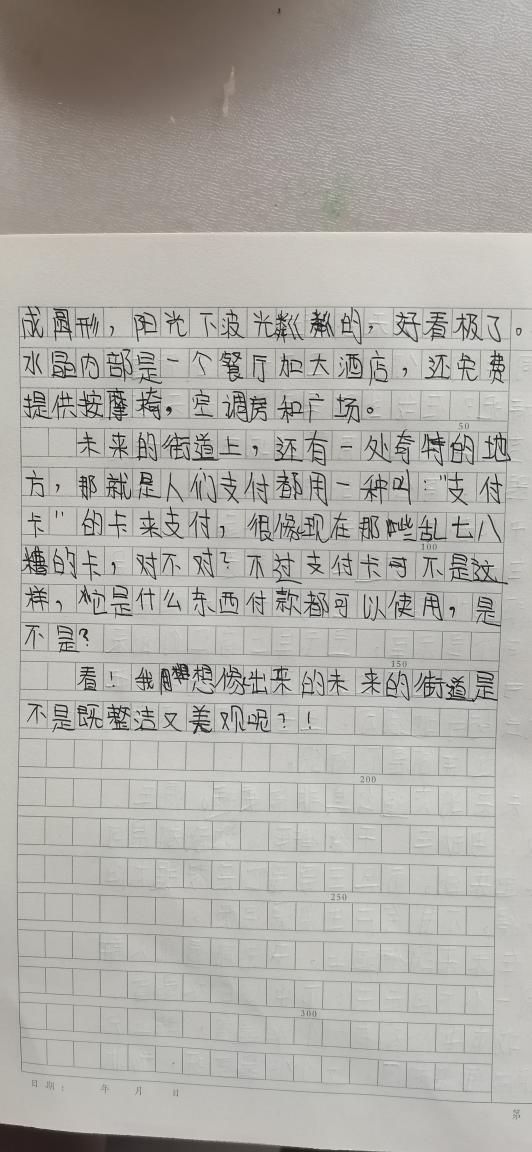 成圆形，阳光下波光粼粼的，好看极了。
水晶内部是一个餐厅加大酒店，还免费
提供按摩椅，空调房和广场。
50
未来的街道上，还有一处奇特的地
方，那就是人们支付都用一种叫："支付
卡"的卡来支付，很像现在那些乱七八
100
糟的卡，对不对？不过支付卡可不是这
样，它是什么东西付款都可以使用，是
不是？
150
看！我用想像出来的未来的街道是
不是既整洁又美观呢？！
200
250
300
日期： 年 月 日
第